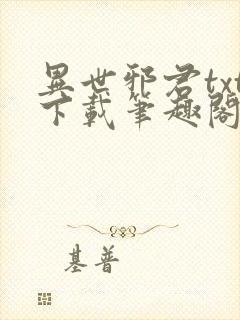 異世邪君txt
下載筆趣閣
基普